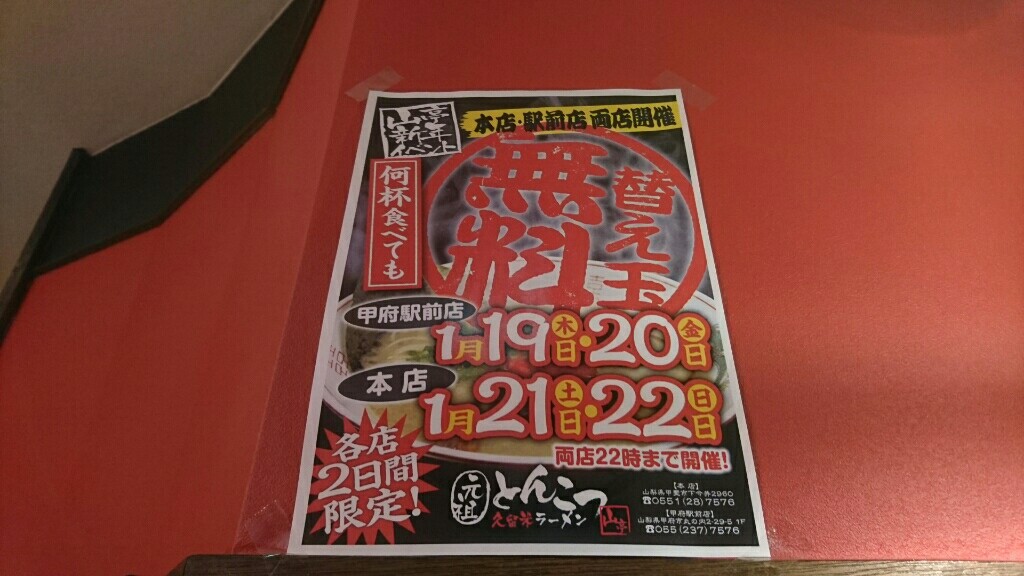 山亭
新年
イベント
本店・駅前店 両店開催
何杯食べても
替え玉
無料
甲府駅前店
1月19木日・20金日
本店
1月21土日・22日日
両店22時まで開催!
各店
2日間
限定!
元祖
とんこつ
久留米ラーメン
山亭
【本店】
山梨県甲斐市下今井2960
☎0551(28)7576
【甲府駅前店】
山梨県甲府市丸の内2-29-5 1F
☎055(237)7576